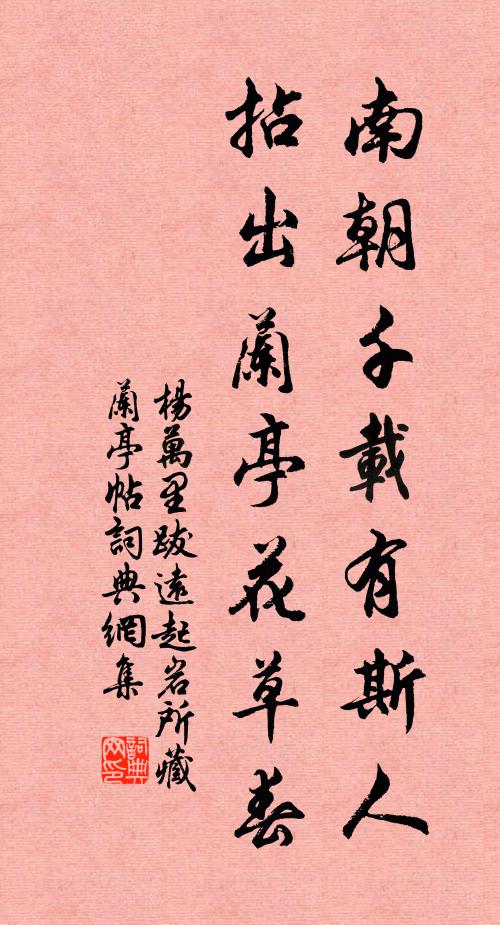 南朝千載有斯人
拈出蘭亭花草春
楊萬里跋遠起岩所藏
蘭亭帖詞典網集
詞典
网印